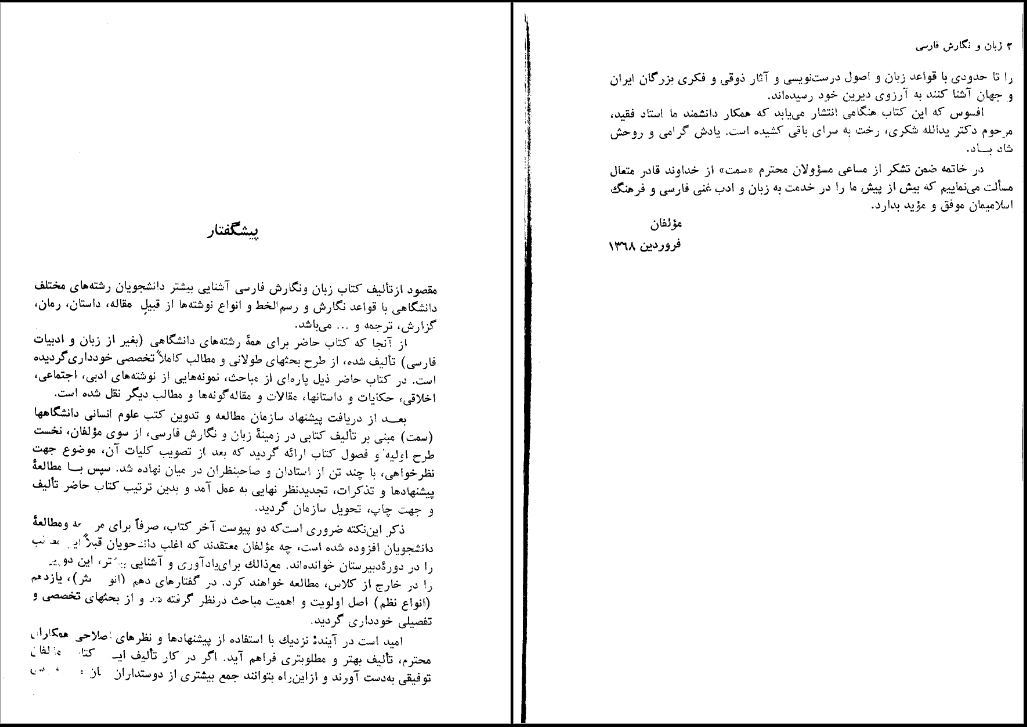 پیشگفتار
مقصود ازتألیف کتاب زبان ونگارش فارسی آشنایی بیشتر دانشجویان رشته‌های مختلف
دانشگاهی با قواعد نگارش و رسم‌الخط و انواع نوشته‌ها از قبیل مقاله، داستان، رمان،
گزارش، ترجمه و ... می‌باشد.
از آنجا که کتاب حاضر برای همهٔ رشته‌های دانشگاهی (بغیر از زبان و ادبیات
فارسی) تألیف شده، از طرح بحثهای طولانی و مطالب کاملاً تخصصی خودداری‌گردیده
است. در کتاب حاضر ذیل پاره‌ای از مباحث، نمونه‌هایی از نوشته‌های ادبی، اجتماعی،
اخلاقی، حکایات و داستانها، مقالات و مقاله‌گونه‌ها و مطالب دیگر نقل شده است.
بعـد از دریافت پیشنهاد سازمان مطالعه و تدوین کتب علوم انسانی دانشگاهها
(سمت) مبنی بر تألیف کتابی در زمینهٔ زبان و نگارش فارسی، از سوی مؤلفان، نخست
طرح اولیه و فصول کتاب ارائه گردید که بعد از تصویب کلیات آن، موضوع جهت
نظرخواهی، با چند تن از استادان و صاحبنظران در میان نهاده شد. سپس بـا مطالعهٔ
پیشنهادها و تذکرات، تجدیدنظر نهایی به عمل آمد و بدین ترتیب کتاب حاضر تألیف
و جهت چاپ، تحویل سازمان گردید.
ذکر این‌نکته ضروری است‌که دو پیوست آخر کتاب، صرفاً برای ومطالعهٔ
دانشجویان افزوده شده است، چه مؤلفان معتقدند که اغلب دانشجویان قبلاً
را در دورهٔدبیرستان خوانده‌اند. مع‌ذالك برای‌یادآوری و آشنایی این دو
را در خارج از کلاس، مطالعه خواهند کرد. در گفتارهای دهم یازدهم
(انواع نظم) اصل اولویت و اهمیت مباحث درنظر گرفته شد و از بحثهای تخصصی و
تفصیلی خودداری گردید.
امید است در آیندهٔ نزدیك با استفاده از پیشنهادها و نظرهای اصلاحی همکاران
محترم، تألیف بهتر و مطلوبتری فراهم آید. اگر در کار تألیف کتاب مؤلفان
توفیقی به‌دست آورند و ازاین‌راه بتوانند جمع بیشتری از دوستداران
۲ زبان و نگارش فارسی
را تا حدودی با قواعد زبان و اصول درست‌نویسی و آثار ذوقی و فکری بزرگان ایران
و جهان آشنا کنند به آرزوی دیرین خود رسیده‌اند.
افسوس که این کتاب هنگامی انتشار می‌یابد که همکار دانشمند ما استاد فقید،
مرحوم دکتر یدالله شکری، رخت به سرای باقی کشیده است. یادش گرامی و روحش
شاد بـاد.
در خاتمه ضمن تشکر از مساعی مسؤولان محترم «سمت» از خداوند قادر متعال
مسألت می‌نماییم که بیش از پیش ما را در خدمت به زبان و ادب غنی فارسی و فرهنگ
اسلامیمان موفق و مؤید بدارد.
مؤلفان
فروردین ۱۳۶۸